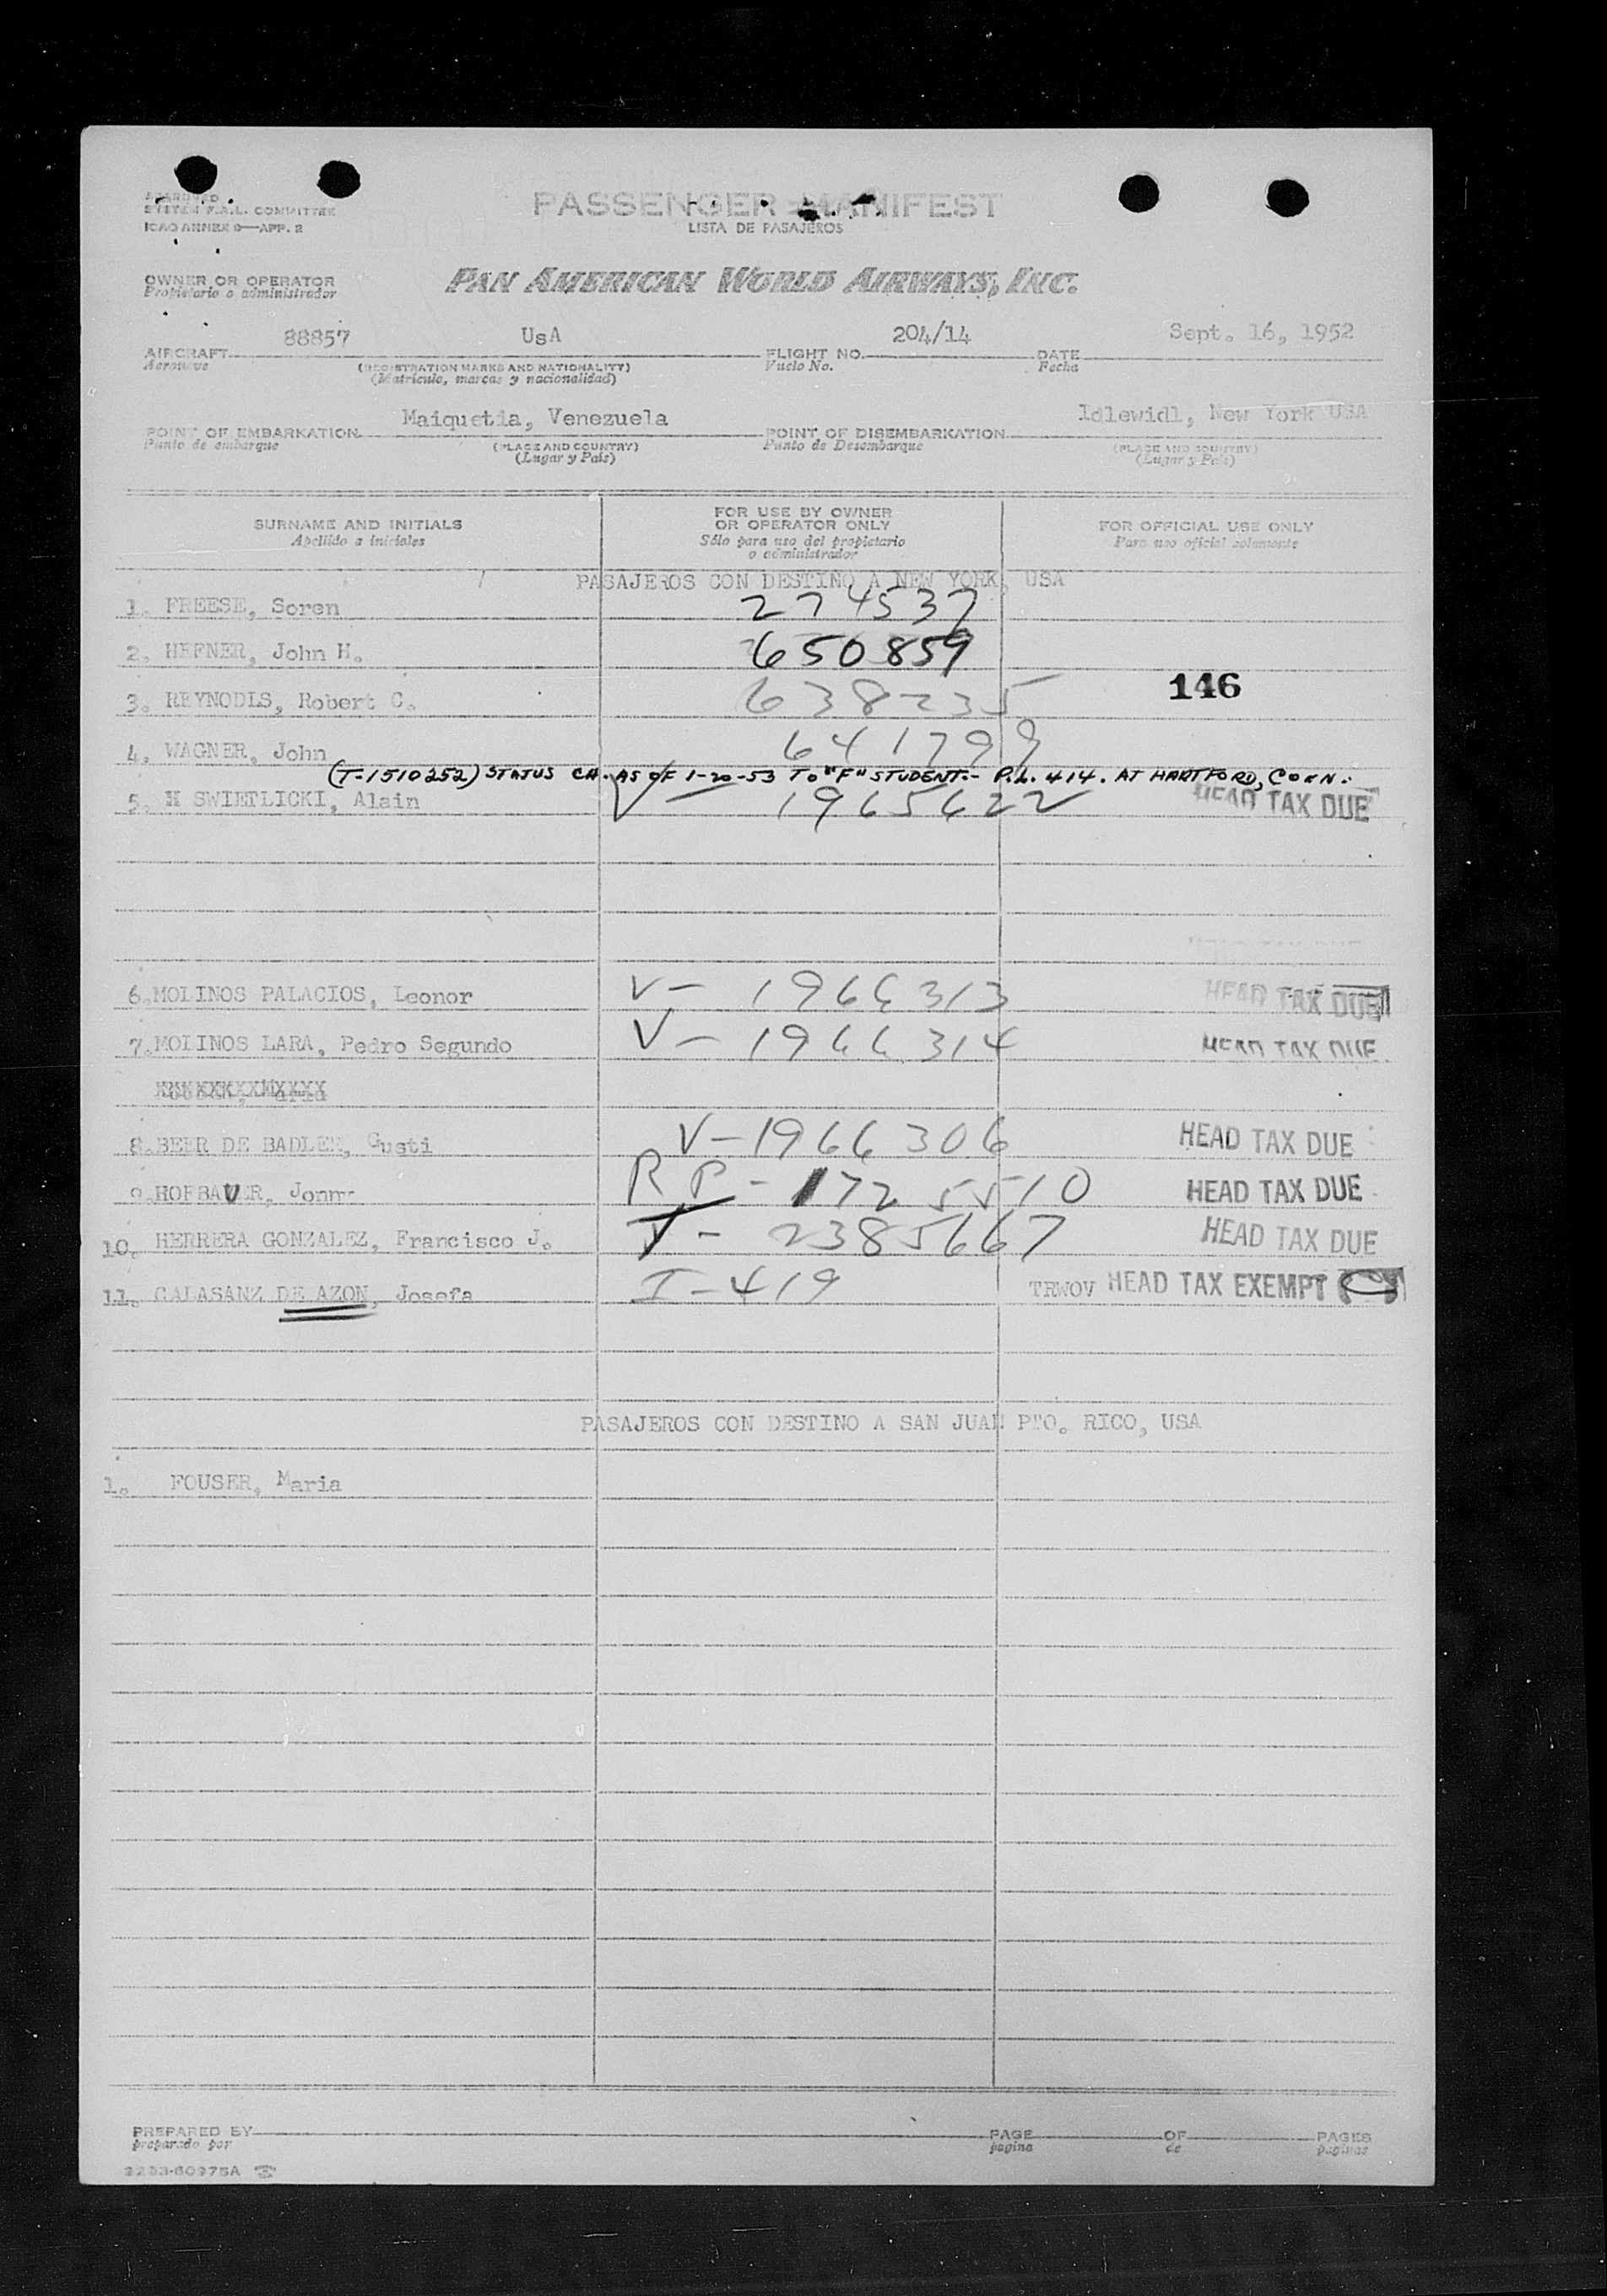 APPROVED
SYSTEM F.A.L. COMMITTEE
ICAO ANNEX 9—APP. 2
PASSENGER MANIFEST
LISTA DE PASAJEROS
OWNER OR OPERATOR
Propietario o administrador
PAN AMERICAN WORLD AIRWAYS, INC.
88857 UsA 204/14 Sept. 16, 1952
AIRCRAFT FLIGHT NO. DATE
Aeronave (REGISTRATION MARKS AND NATIONALITY) Vuelo No. Fecha
(Matrícula, marcas y nacionalidad)
Maiquetia, Venezuela Idlewidl, New York USA
POINT OF EMBARKATION POINT OF DISEMBARKATION
Punto de embarque (PLACE AND COUNTRY) Punto de Desembarque (PLACE AND COUNTRY)
(Lugar y País) (Lugar y País)
SURNAME AND INITIALS
Apellido e iniciales
FOR USE BY OWNER
OR OPERATOR ONLY
Sólo para uso del propietario
o administrador
FOR OFFICIAL USE ONLY
Para uso oficial solamente
PASAJEROS CON DESTINO A NEW YORK, USA
1. FREESE, Soren 274537
2. HEFNER, John H. 650859
146
3. REYNODLS, Robert C. 638235
4. WAGNER, John 641799
(T-1510252) STATUS CH. AS OF 1-20-53 TO "F" STUDENT - P.L. 414. AT HARTFORD, CONN.
5. SWIETLICKI, Alain V— 1965622 HEAD TAX DUE
6. MOLINOS PALACIOS, Leonor V— 1966313 HEAD TAX DUE
7. MOLINOS LARA, Pedro Segundo V— 1966314 HEAD TAX DUE
8. BEER DE BADLER, Gusti V—1966306 HEAD TAX DUE
9. HOFBAUER, Jonny RP- 1725510 HEAD TAX DUE
10. HERRERA GONZALEZ, Francisco J. V- 2385667 HEAD TAX DUE
11. CALASANZ DE AZON, Josefa I-419 TRWOV HEAD TAX EXEMPT
PASAJEROS CON DESTINO A SAN JUAN PTO. RICO, USA
1. FOUSER, Maria
PREPARED BY PAGE OF PAGES
preparado por pagina de paginas